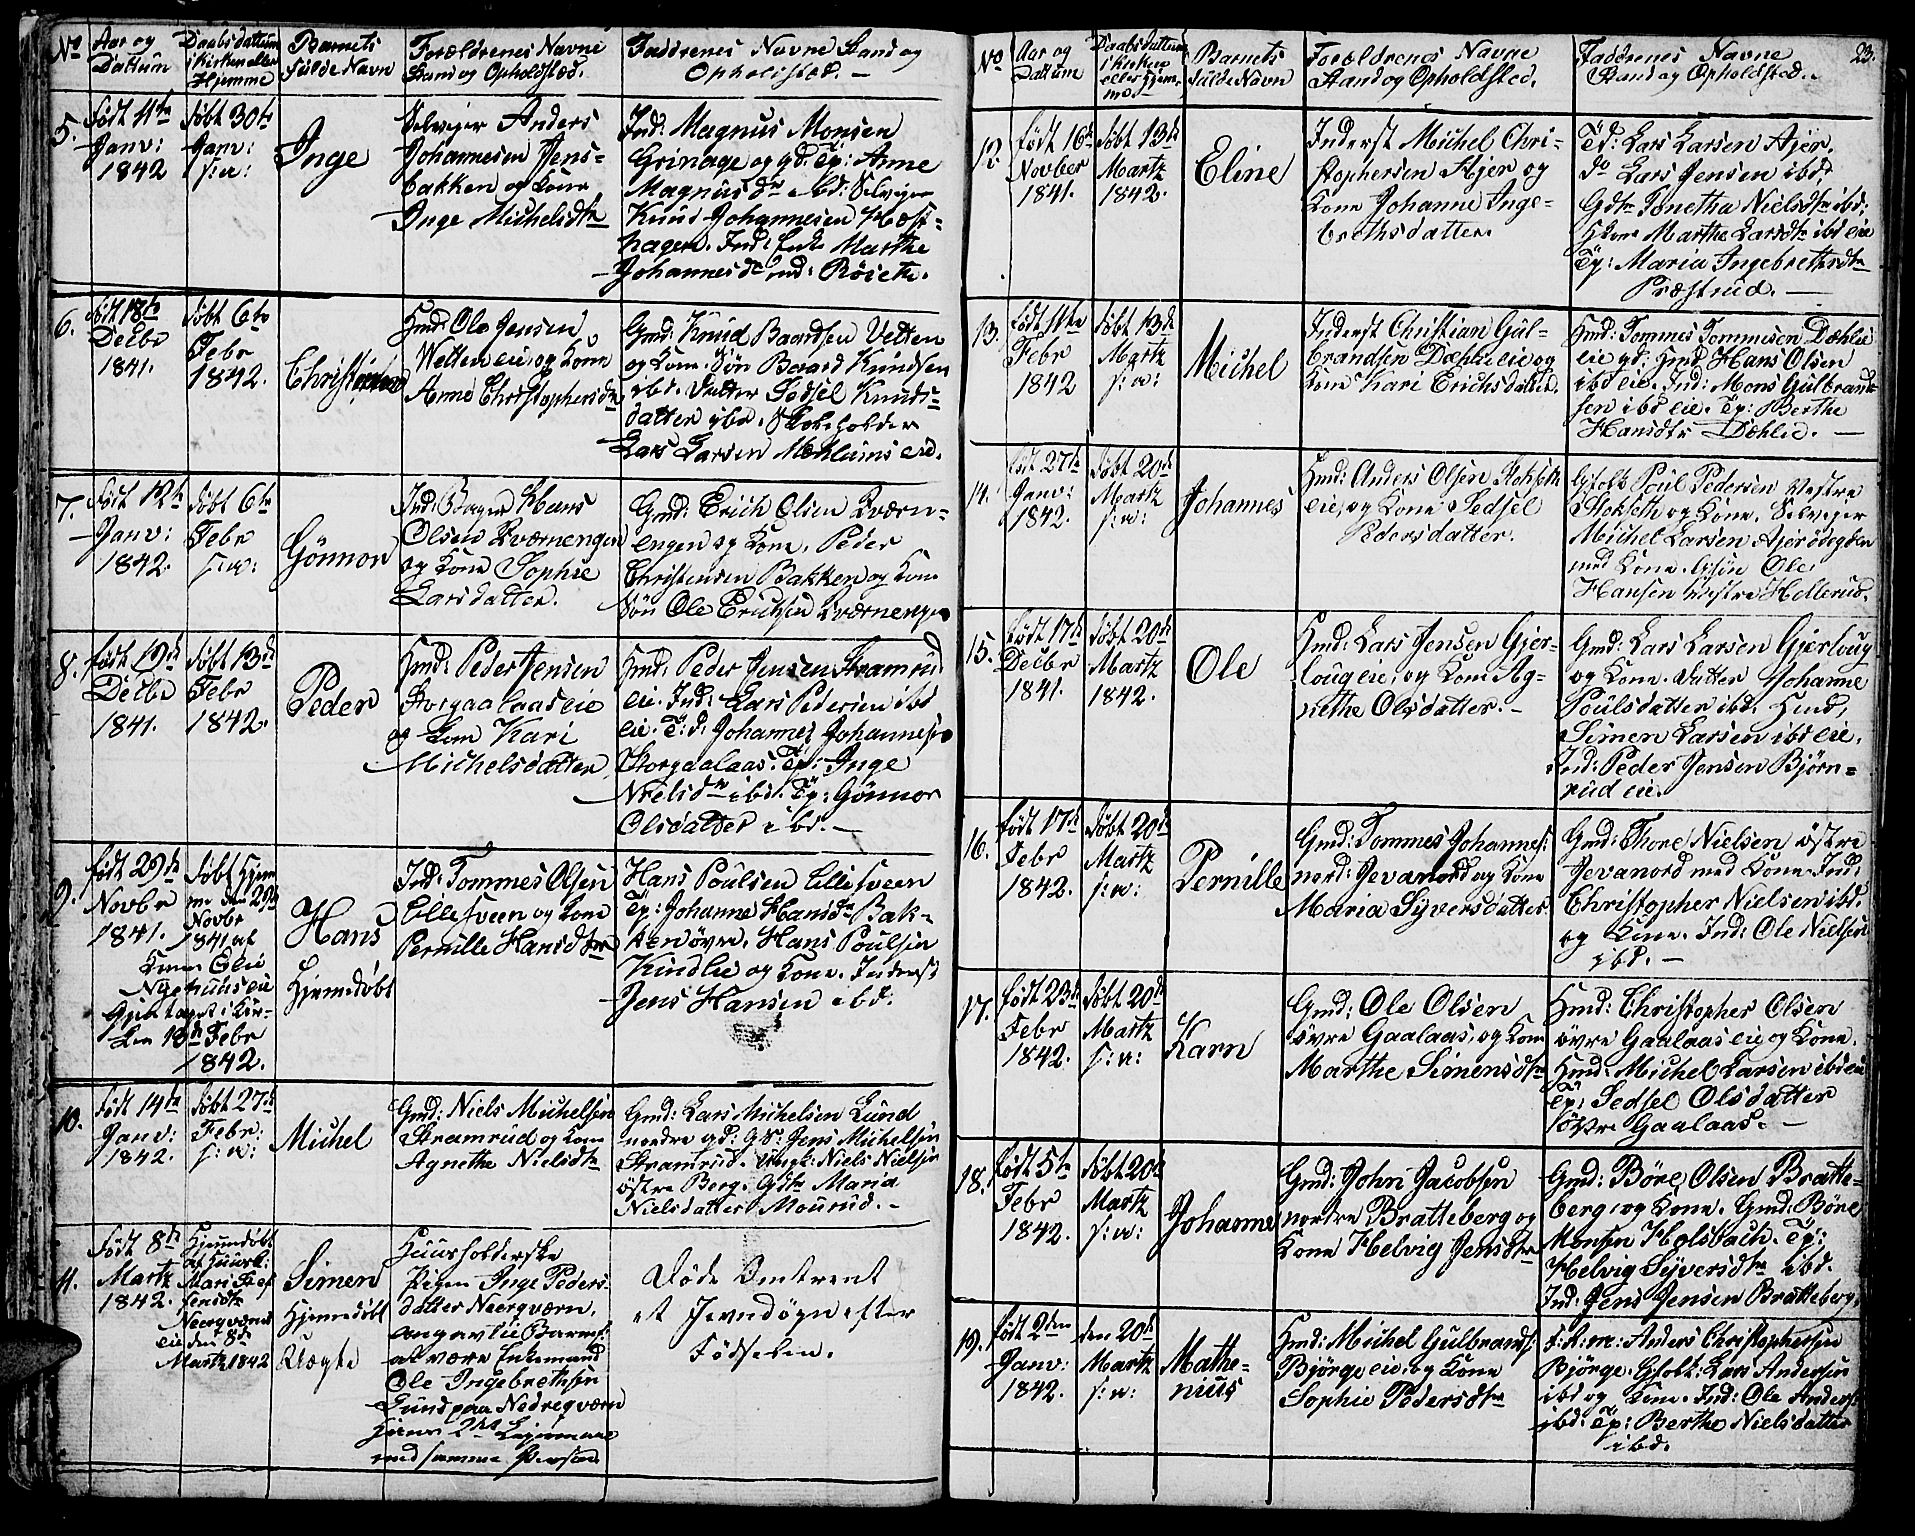 No
Aar og
Dattum
Daabsdattum
i Kirken eller
Hjemme
Barnets
fulde Navn
Forældrenes Navne
Stand og Opholdsted.
Faddrenes Navne Stand og
Opholdsted. —
5.
født 11te
Janv:
1842
døbt 30te
Janv:
s: a:
Inge
Selvejer Anders
Johannesen Jens-
bakken og Kone
Inge Michelsdtr
Ind: Magnus Monsen
Grinage og gd: Tp: Anne
Magnusdr ibd: Selvejer
Knud Johannesen Hest-
hagen. Ind: Enke Marthe
Johannesdr
6.
født 18de
Decbr
1841.
døbt 6te
Febr
1842.
Hmd: Ole Jensen
Wetten eie, og Kone
Anne Christophersdtr
Gmd: Knud Baardsen Vetten
og Kone. Søn Baard Knudsen
ibd. Datter Sedsel Knuds-
datter ibd. Skoleholder
Lars Larsen Mehlums eie.
7.
født 12te
Janv:
1842.
døbt 6te
Febr
s: a:
Gönnor
Ind: Bager Hans
Olsen Kværnengen
og Kone Sophie
Larsdatter.
Gmd: Erich Olsen Kværn-
engen og Kone. Peder
Christensen Bakken og Kone
Søn Ole Erichsen Kværnengen
8.
født 19de
Decbr
1841.
døbt 13de
Febr
1842.
Peder
Hmd: Peder Jensen
Storgaalaas eie
og Kone Kari
Michelsdatter
Hmd: Peder Jensen Stramrud
eie. Ind: Lars Pedersen ibd
eie. T:d: Johannes Johannesen
Storgaalaas. Tp: Inge
Nielsdtr ibd. Tp: Gönnor
Olsdatter ibd. —
9.
født 29de
Novbr
1841.
døbt Hjem
me den 29de
Novbr
1841 af
Kone Eli
Nyehuus eie
Gjentaget i Kir-
ken 13de Febr
1842.
Hans
Hjemedøbt
Ind: Tommes Olsen
Ellesveen og Kone
Pernille Hansdtr
Hans Poulsen Ellesveen
Tp: Johanne Hansdr Bak-
ken øvre. Hans Poulsen
Kindlie og Kone. Inderst
Jens Hansen ibd.
10.
født 14de
Janv:
1842.
døbt 27de
Febr:
s: a:
Michel
Gmd: Niels Michelsen
Stramrud og Kone
Agnethe Nielsdtr
Gmd: Lars Michelsen Lund
nordre gd: GS: Jens Michelsen
Stramrud. Ungk: Niels Nielsen
østre Berg. Gdtr Maria
Nielsdatter Mourud. -
11.
født 8de
Martz
1842.
Hjemedøbt
den 8de
Martz 1842
Simen
Hjemedøbt
Uægte
Huusholderske
Pigen Inge Peders-
datter Neerqværn,
angav til Barnef:
at være Enkemand
Ole Ingebrethsen
Lund paa Nedreqværn
med samme Person
Døde Omtrent
et Jevndøgn efter
Fødselen.
No
Aar og
Dattum
Daabsdattum
i Kirken
eller Hjem-
me
Barnets
fulde Navn
Forældrenes Navne
Stand og Opholdsted.
Faddrenes Navne
Stand og Opholdsted. -
23.
12.
født 16de
Novber
1841.
døbt 13de
Martz
1842.
Eline
Inderst Michel Chri-
stophersen Ajer og
Kone Johanne Inge-
brethsdatter.
Td: Lars Larsen Ajer.
do Lars Jensen ibd:
Gdtr Tonetha Nielsdtr ibd:
Kone Marthe Larsdtr ibd eie
Tp: Maria Ingebrethsdtr
Præstrud. —
13.
født 11te
Febr
1842
døbt 13de
Martz
s: a:
Michel
Inderst Christian Gul-
brandsen Dæhli eie og
Kone Kari Erichsdatter.
Hmd: Tommes Tommesen Dæhlie
eie gd: Hmd Hans Olsen
ibd eie. Ind: Mons Gulbrand-
sen ibd eie. Tp: Berthe
Hansdtr Dæhlie. —
14.
født 27de
Janv:
1842.
døbt 20de
Martz
s: a:
Johannes
Hmd: Anders Olsen Stokseth
eie, og Kone Sedsel
Pedersdatter.
Gfolk Poul Pedersen Vestre
Stokseth og Kone. Selvejer
Michel Larsen Ajerødegden
med Kone. Gsøn Ole
Hansen Vestre Hellerud.
15.
født 17de
Decbr
1841.
døbt 20de
Martz
1842.
Ole
Hmd: Lars Jensen Gjer-
loug eie, og Kone Ag-
nethe Olsdatter. -
Gmd: Lars Larsen Gjerloug
og Kone. Datter Johanne
Poulsdatter ibd. Hmd:
Simen Larsen ibd eie.
Ind: Peder Jensen Bjørn-
rud eie.
16.
født 17de
Febr
1842.
døbt 20de
Martz
s: a:
Pernille
Gmd: Tommes Johannes:
nord: Jevanord og Kone
Maria Syversdatter
Gmd: Thore Nielsen østre
Jevanord med Kone. Ind:
Christopher Nielsen ibd.
og Kone. Ind: Ole Nielsen
ibd. —
17.
født 23de
Febr
1842.
døbt 20de
Martz
s: a:
Karn
Gmd: Ole Olsen
øvre Gaalaas, og Kone
Marthe Simensdtr
Hmd: Christopher Olsen
øvre Gaalaas eie og Kone.
Hmd: Michel Larsen ibd eie
Tp: Sedsel Olsdatter
øvre Gaalaas. —
18.
født 5te
Febr
1842.
døbt 20de
Martz
s: a:
Johanne
Gmd: John Jacobsen
nordre Bratteberg og
Kone Helvig Jensdtr
Gmd: Børe Olsen Bratte-
berg, og Kone. Gmd: Børe
Monsen Holsbach. Tp:
Helvig Syversdtr ibd.
Ind: Jens Jensen Bratteberg.
19.
født 2den
Janv:
1842.
den 20de
Martz
s: a:
Mathe-
nius
Hmd: Michel Gulbrands:
Bjørge eie, og Kone
Sophie Pedersdtr
Anders Christophersen
Bjørge. Gfolk: Lars Andersen
ibd og Kone. Ind: Ole Anders:
ibd: Tp: Berthe Nielsdatter
ibd.